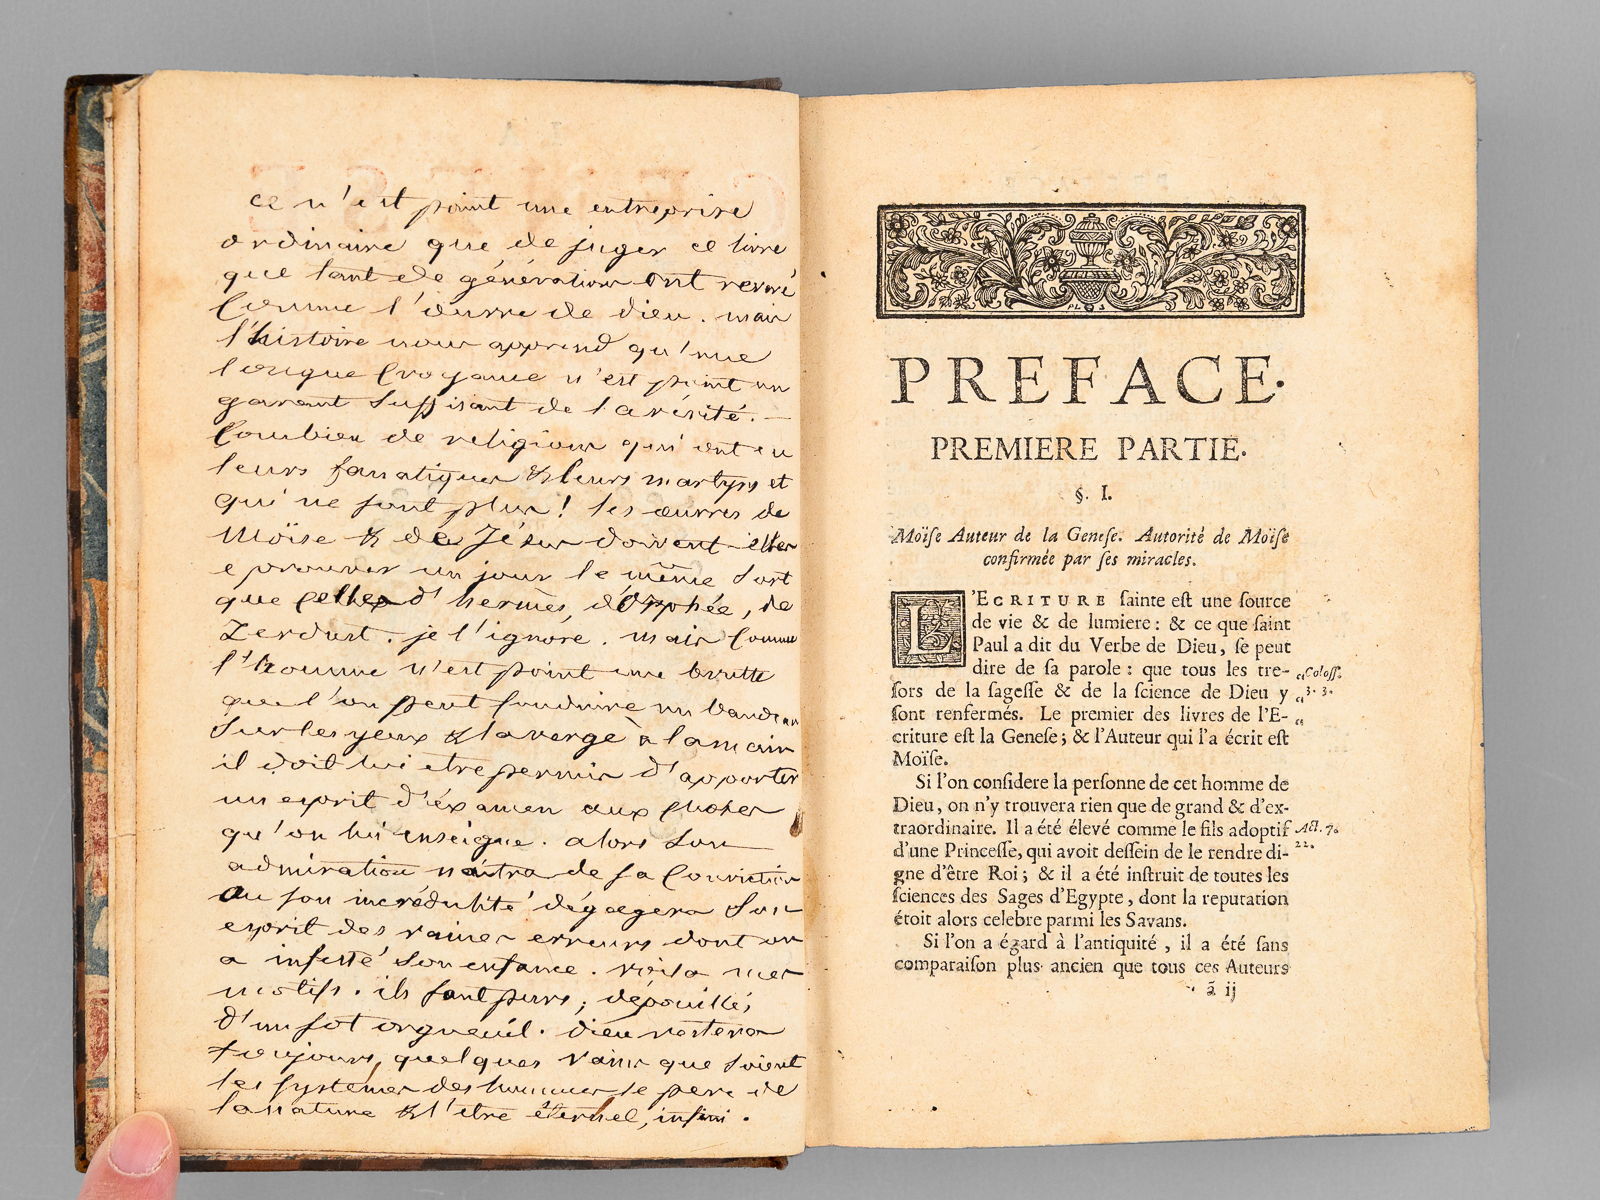 ce n'est point une entreprise
ordinaire que de juger ce livre
que tant de générations ont reveré
comme l'œuvre de dieu. mais
l'histoire nous apprend qu'une
longue croyance n'est point un
garant suffisant de la vérité. —
Combien de religions qui ont eu
leurs fanatiques & leurs martyrs et
qui ne sont plus! les œuvres de
Moïse & de Jésus doivent elles
eprouver un jour le même sort
que celles d'hermès, d'Orphée, de
Zerdust. je l'ignore. mais comme
l'homme n'est point une brutte
que l'on peut conduire un bandeau
sur les yeux & la verge à la main
il doit lui etre permis d'apporter
un esprit d'éxamen aux choses
qu'on lui enseigne. alors son
admiration naitra de sa conviction
ou son incrédulité dégagera son
esprit des vaines erreurs dont on
a infesté son enfance. voila mes
motifs. ils sont purs; dépouillés
d'un sot orgueuil. Dieu restera
toujours, quelques vains que soient
les systémes des hommes le pere de
la nature & l'etre éternel, infini.
PREFACE.
PREMIERE PARTIE.
§. I.
Moïse Auteur de la Genese. Autorité de Moïse
confirmée par ses miracles.
L'ECRITURE sainte est une source
de vie & de lumiere: & ce que saint
Paul a dit du Verbe de Dieu, se peut
dire de sa parole: que tous les tre- „Coloss.
sors de la sagesse & de la science de Dieu y „3. 3.
sont renfermés. Le premier des livres de l'E- „
criture est la Genese; & l'Auteur qui l'a écrit est
Moïse.
Si l'on considere la personne de cet homme de
Dieu, on n'y trouvera rien que de grand & d'ex-
traordinaire. Il a été élevé comme le fils adoptif Act. 7.
d'une Princesse, qui avoit dessein de le rendre di- 22.
gne d'être Roi; & il a été instruit de toutes les
sciences des Sages d'Egypte, dont la reputation
étoit alors celebre parmi les Savans.
Si l'on a égard à l'antiquité, il a été sans
comparaison plus ancien que tous ces Auteurs
ã ij